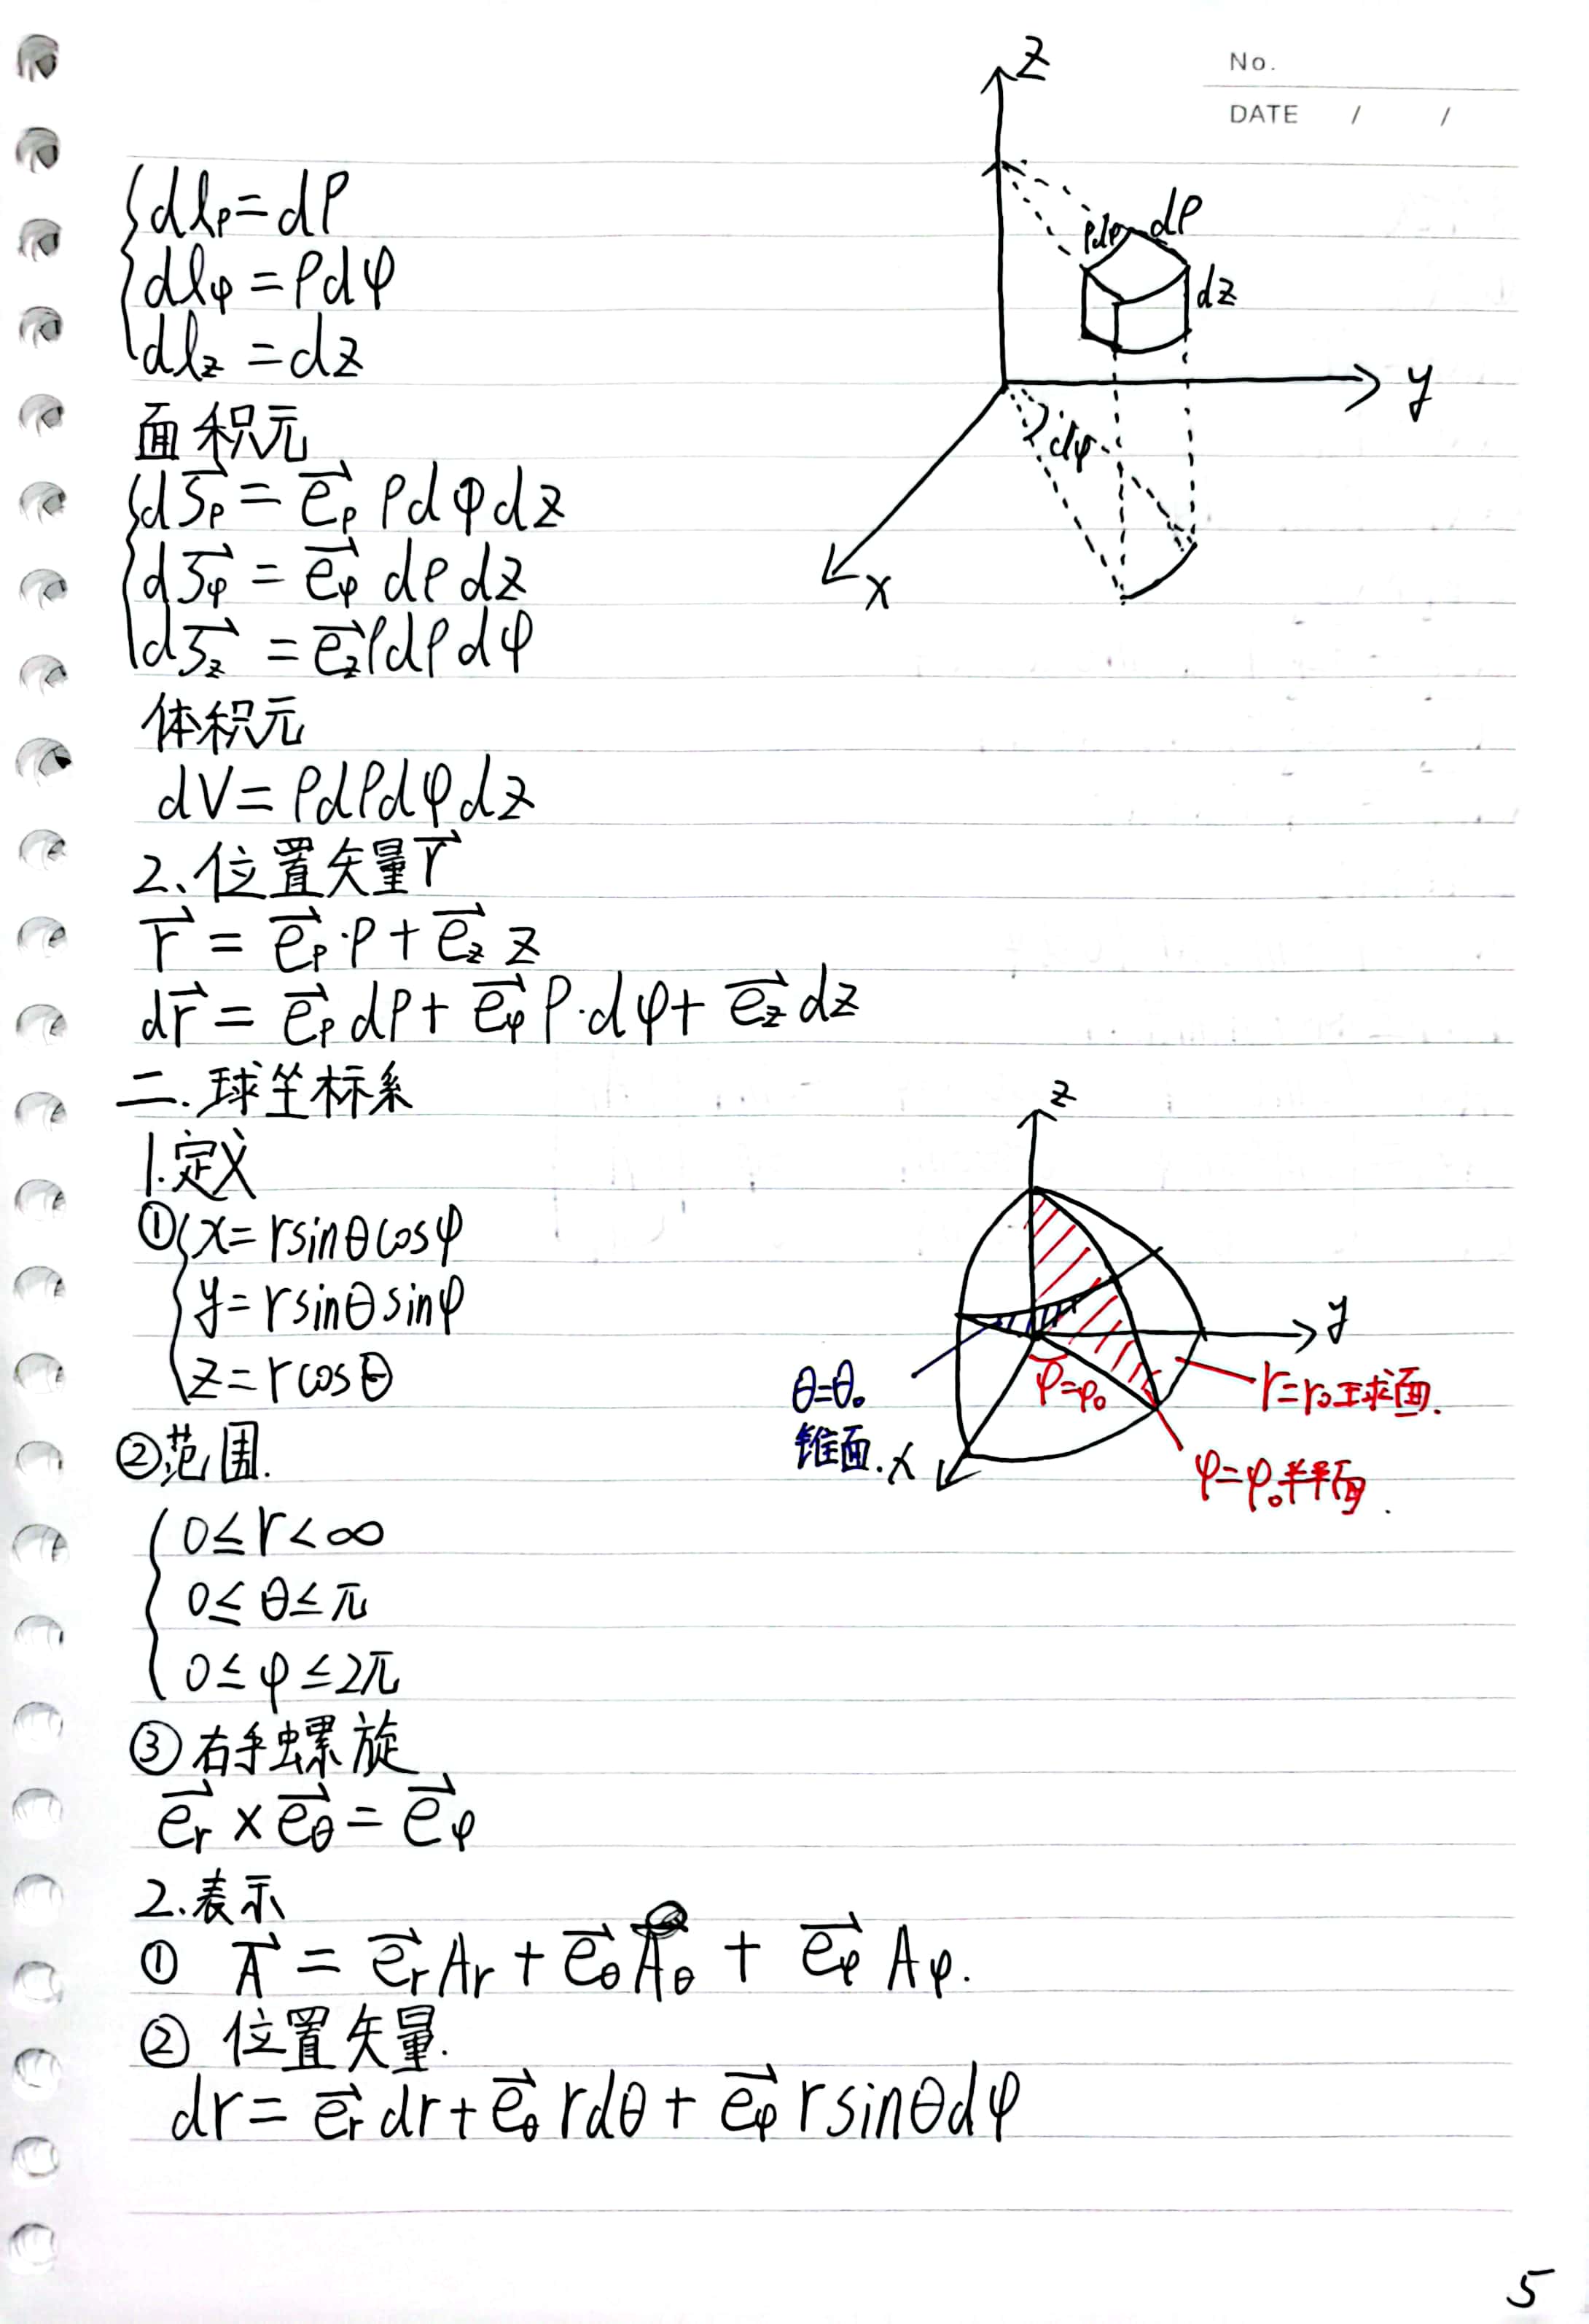 No.
DATE / /
z
dlρ = dρ
dlφ = ρdφ
dlz = dz
ρdφ dρ
dz
y
dφ
x
面积元
dS⃗ρ = e⃗ρ ρdφdz
dS⃗φ = e⃗φ dρdz
dS⃗z = e⃗z ρdρdφ
体积元
dV = ρdρdφdz
2、位置矢量r⃗
r⃗ = e⃗ρ·ρ + e⃗z z
dr⃗ = e⃗ρ dρ + e⃗φ ρ·dφ + e⃗z dz
二.球坐标系
1.定义
① x = rsinθcosφ
y = rsinθsinφ
z = rcosθ
z
y
θ=θ₀
锥面.
φ=φ₀
r=r₀球面.
x
φ=φ₀半平面.
②范围.
0≤r<∞
0≤θ≤π
0≤φ≤2π
③右手螺旋
e⃗r × e⃗θ = e⃗φ
2.表示
① A⃗ = e⃗r Ar + e⃗θ Aθ + e⃗φ Aφ.
② 位置矢量.
dr = e⃗r dr + e⃗θ rdθ + e⃗φ rsinθdφ
5